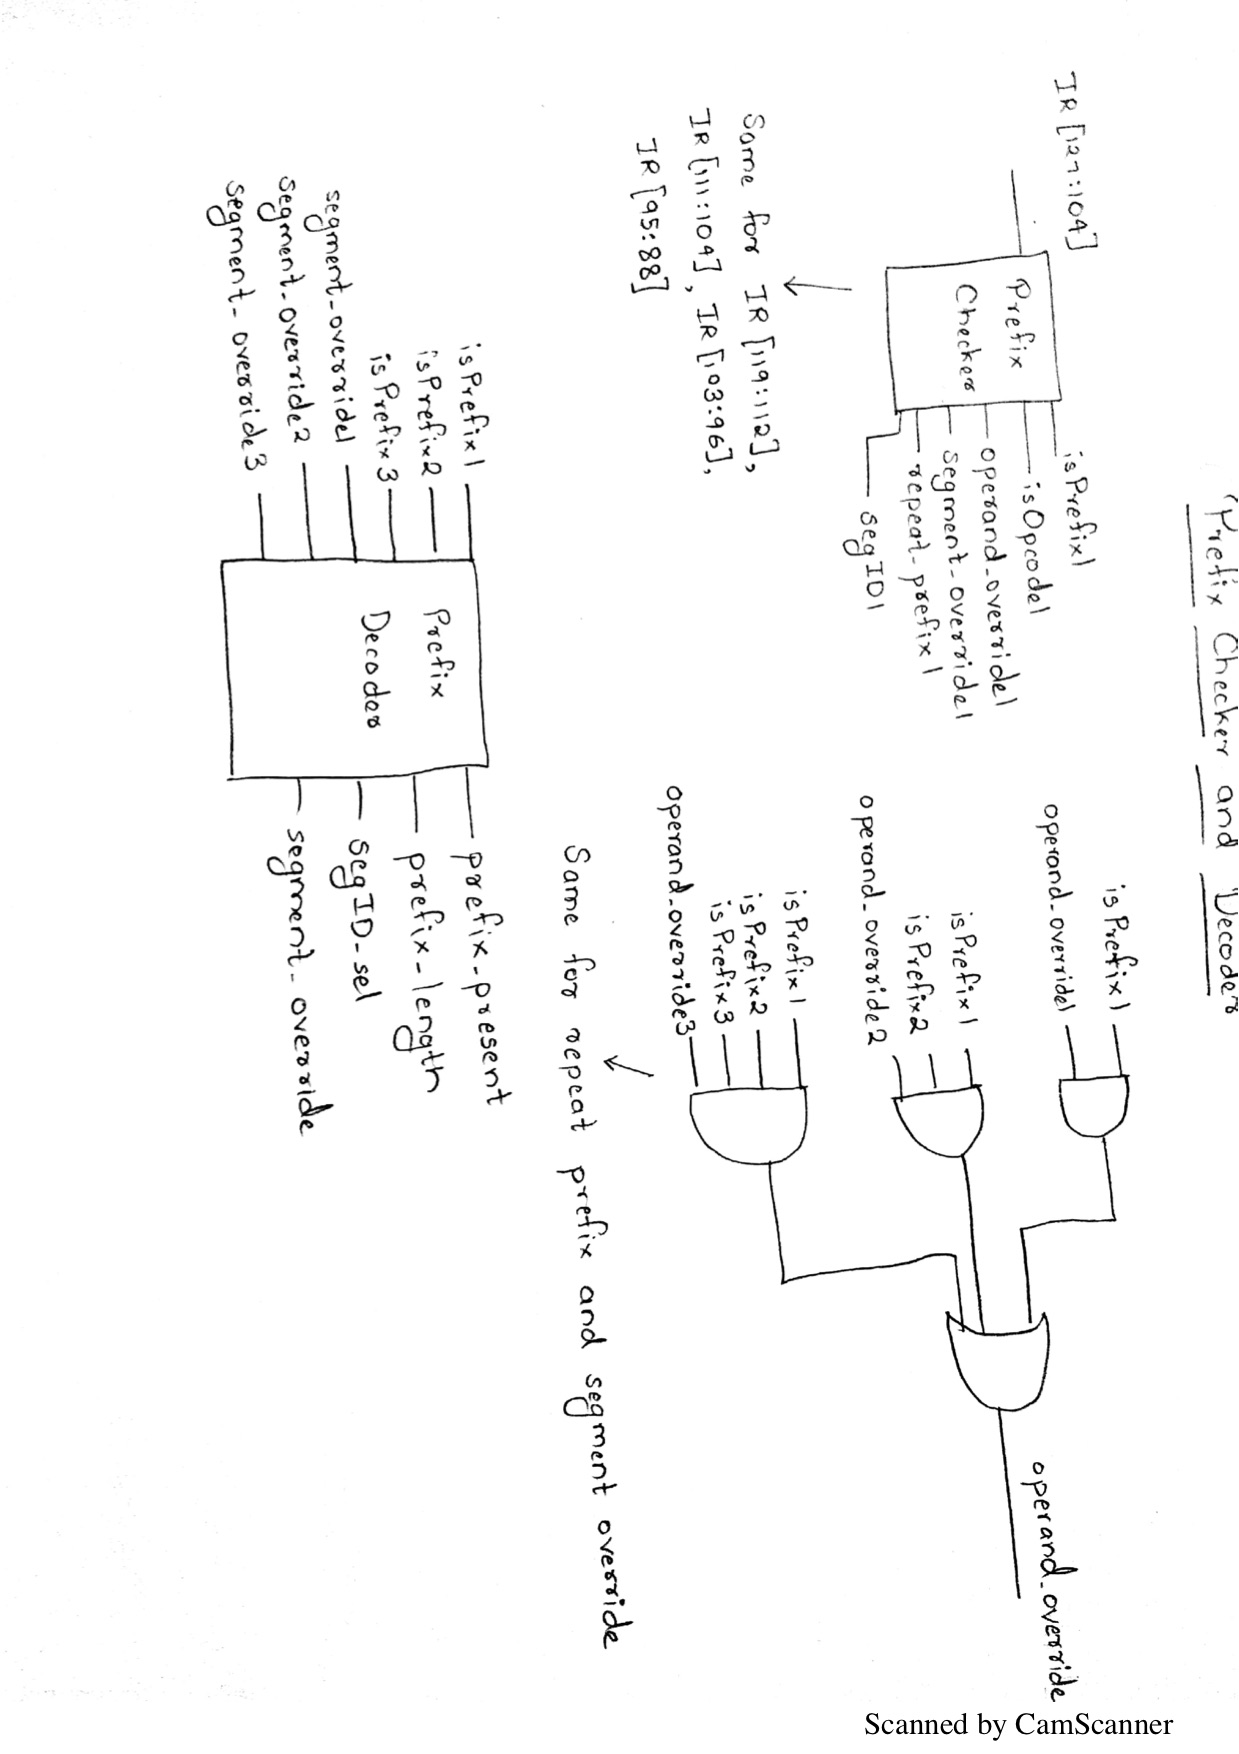 Prefix Checker and Decoder
IR [127:104]
Prefix
Checker
isPrefix1
isOpcode1
operand_override1
segment_override1
repeat_prefix1
segID1
Same for IR [119:112],
IR [111:104], IR [103:96],
IR [95:88]
isPrefix1
operand_override1
isPrefix1
isPrefix2
operand_override2
isPrefix1
isPrefix2
isPrefix3
operand_override3
operand_override
Same for repeat prefix and segment override
isPrefix1
isPrefix2
isPrefix3
segment_override1
segment_override2
segment_override3
Prefix
Decoder
prefix_present
prefix_length
segID_sel
segment_override
Scanned by CamScanner